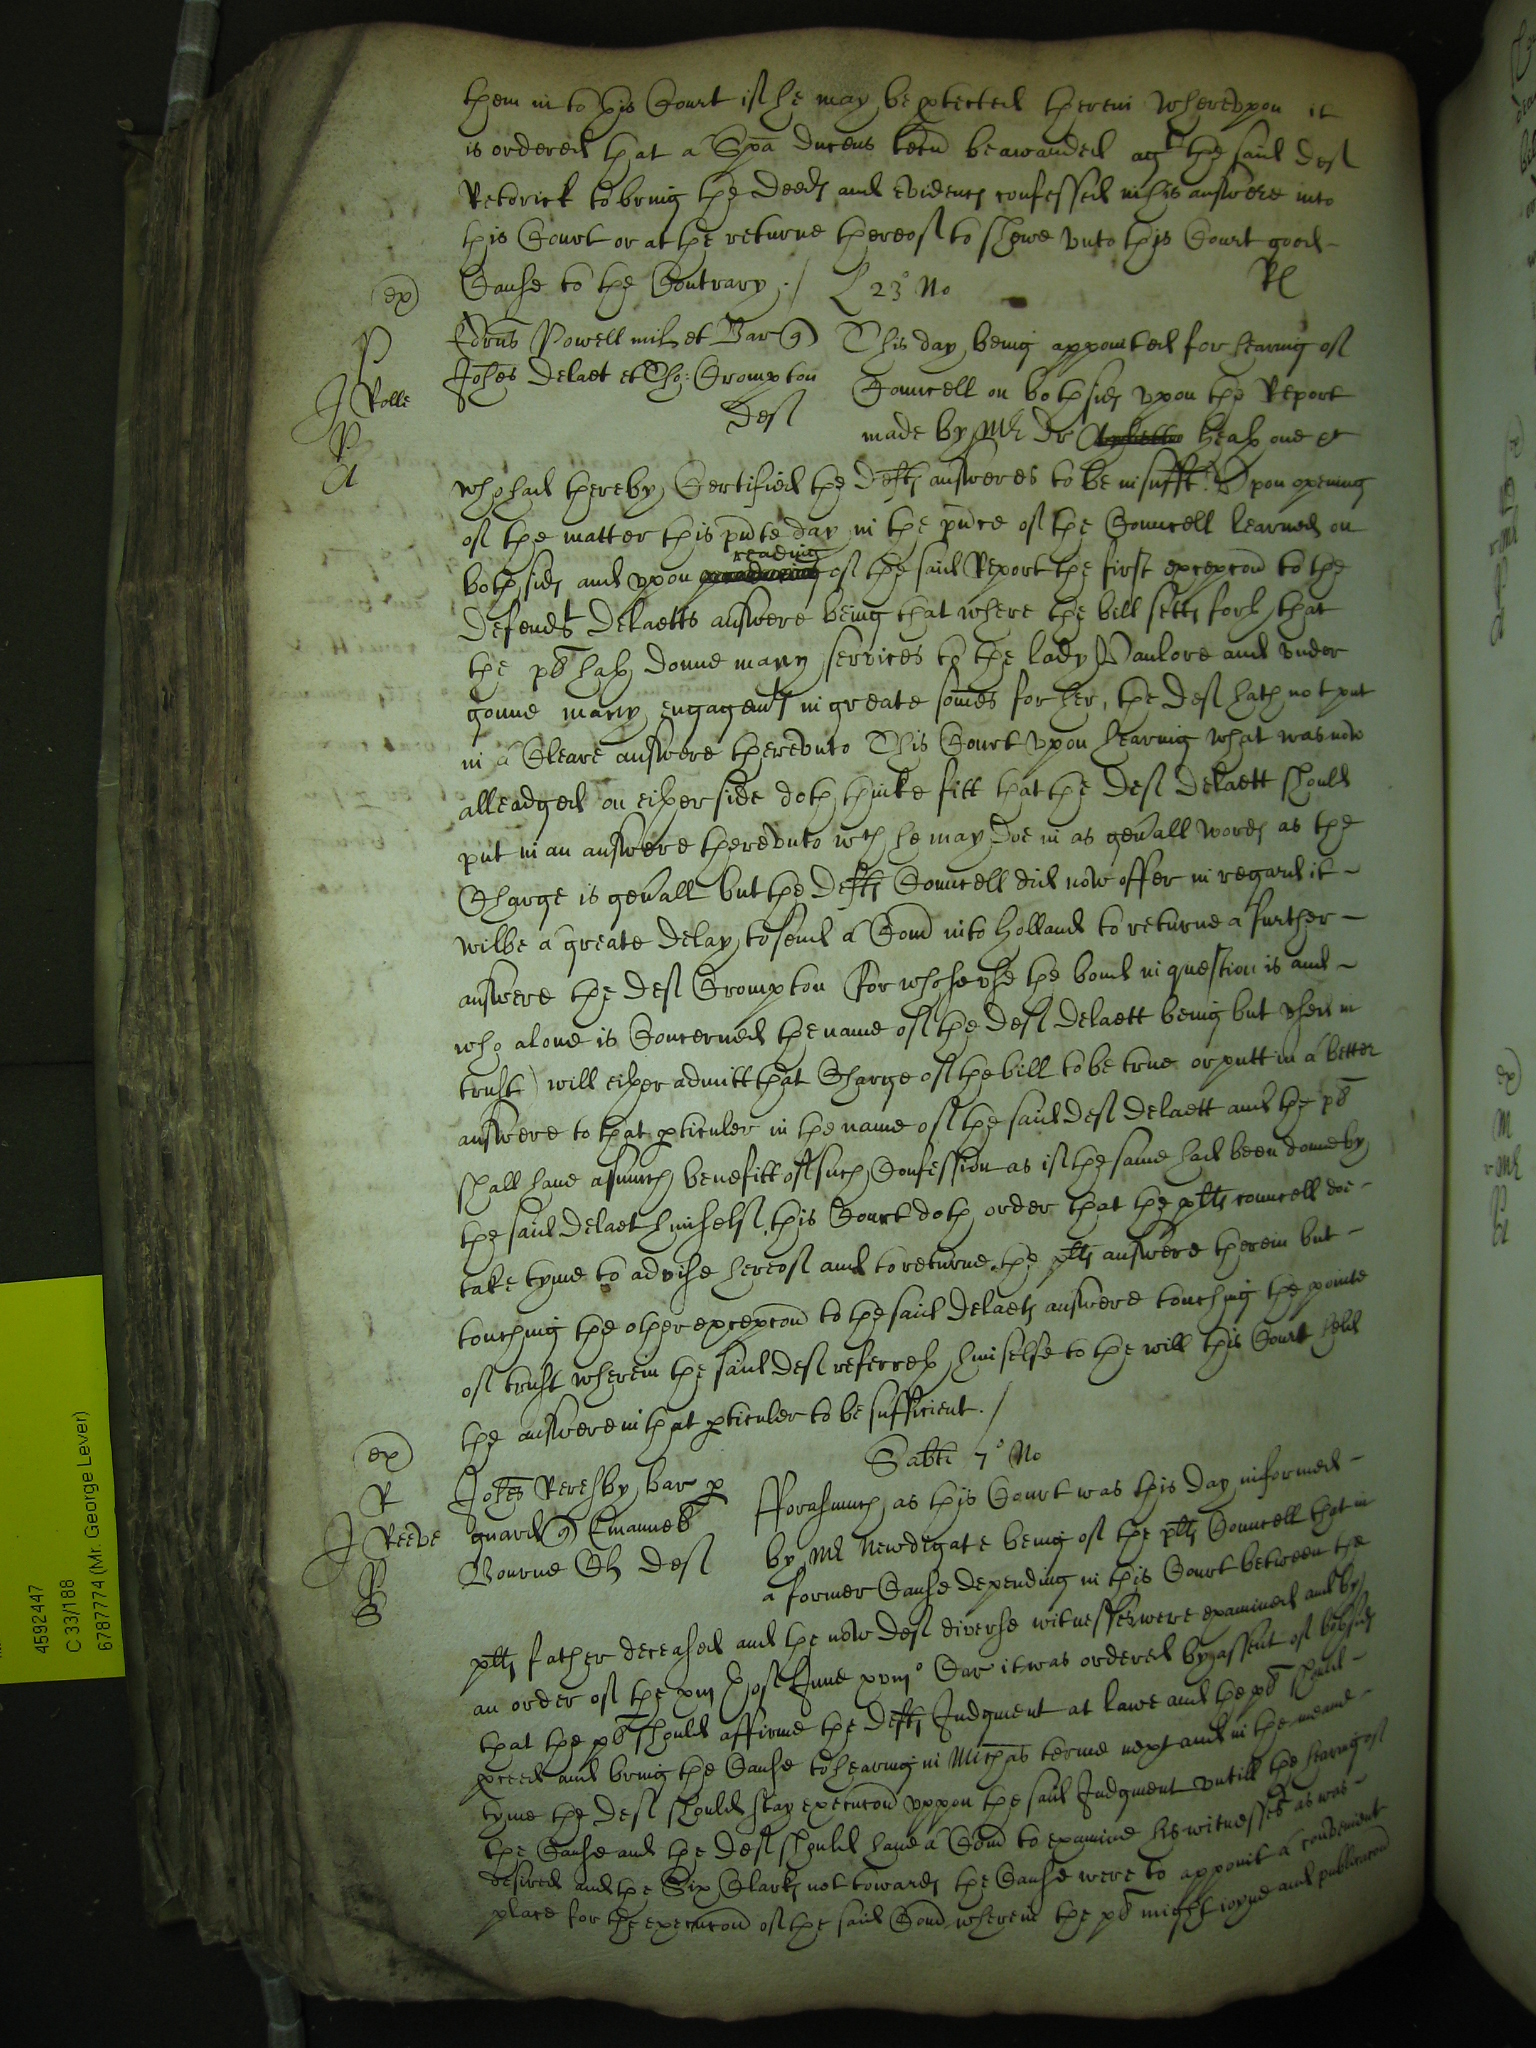 them into this Court if he may be ptected therein Wherevpon it
is ordered that a Spa ducens tecu be awarded agt the said Deft
Retorick to bring the deeds and evidences confessed in his answere into
this Court or at the returne thereof to shewe vnto this Court good
Cause to the Contrary. / 23° No Rl
ex
P
J Rolle
P
A
Edrus Powell mil et Bar q
Johes Delaet et Tho: Crompton
Deft
This day being appointed for hearing of
Councell on both sides vpon the Report
made by Mr Dr heath one &
who had thereby Certified the Defts answeres to be insufft. Vpon opening
of the matter this pnte day in the pnce of the Councell learned on
both sides and vpon reading of the said Report the first excepcon to the
Defendts Delaetts answere being that where the bill setts forth that
the pl hath donne many services to the lady Vanlore and vnder
gonne many engagemts in greate somes for her, the Deft hath not put
in a Cleare answere therevnto This Court vpon hearing what was now
alleadged on either side doth thinke fitt that the Deft Delaett should
put in an answere therevnto wch he may doe in as gen'all words as the
Charge is gen'all but the Defts Councell did now offer in regard it
wilbe a greate delay to send a Com into Holland to returne a further
answere the Deft Crompton (for whose vse the bond in question is and
who alone is Concerned the name of the Deft Delaett being but vsed in
trust) will either admitt that Charge of the bill to be true or putt in a better
answere to that pticuler in the name of the said Deft Delaett and the pl
shall have asmuch benefitt of such Confession as if the same had been donne by
the said Delaet himself, this Court doth order that the plts councell doe
take tyme to advise hereof and to returne the plts answere therein but
touching the other excepcon to the said Delaets answere touching the pointe
of trust wherein the said Deft referreth himselfe to the will this Court held
the answere in that pticuler to be sufficient. /
Sabti 7° No
ex
R
J Reeve
P
B
Johes Reresby bar p
guard q Emanuel
Bourne Cl Deft
Fforasmuch as this Court was this day informed
by Mr Newdigate being of the plts Councell that in
a former Cause depending in this Court betweene the
plts father deceased and the now Deft diverse witnesses were examined and by
an order of the xiiij th of June xviij° Car it was ordered by assent of both sides
that the pl should affirme the Defts Judgment at lawe and the pl should
pceed and bring the Cause to hearing in Michas terme next and in the meane
tyme the Deft should stay execucon vppon the said Judgment vntill the hearing of
the Cause and the Deft should have a Com to examine his witnesses as was
desired and the Six Clarks not towards the Cause were to appoint a convenient
place for the execucon of the said Com wherein the pl might ioyne and publicacon
4592447
C 33/188
6787774 (Mr. George Lever)